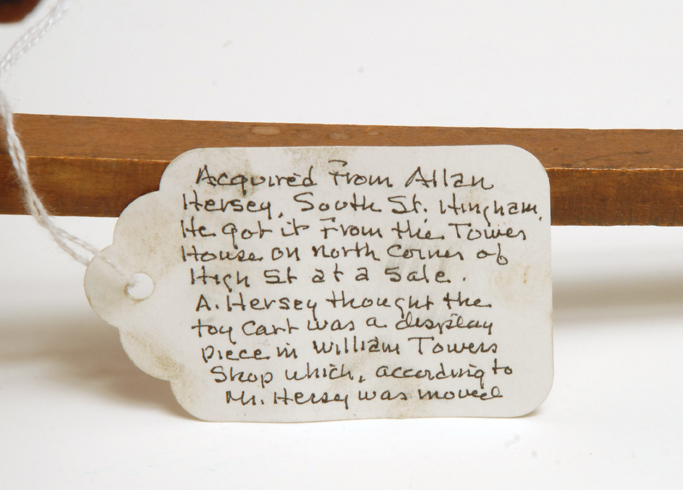 Acquired From Allan
Hersey, South St. Hingham.
He got it From the Tower
House on north corner of
High St at a sale.
A. Hersey thought the
toy cart was a display
piece in William Towers
Shop which, according to
Mr. Hersey was moved